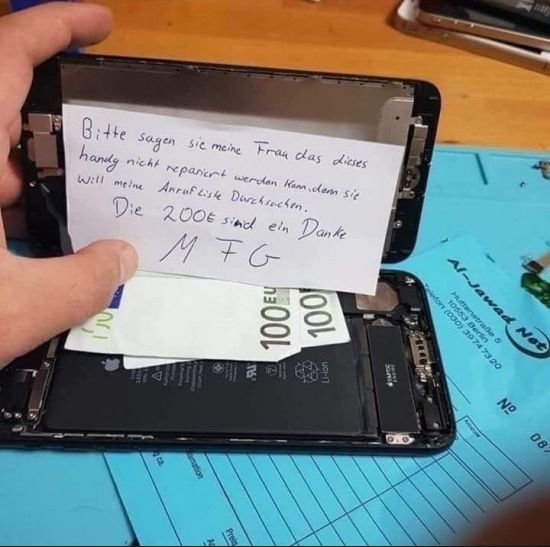 Bitte sagen sie meine Frau das dieses
handy nicht repariert werden kann.denn sie
will meine Anrufliste Durchsuchen.
Die 200€ sind ein Danke
M F G
100 EU
100
Li-ion
TAPTIC
ENGINE
Al-Jawad Net
Huttenstraße 5
10553 Berlin
Telefon: (030) 39 74 73 20
Nº
08
Preis